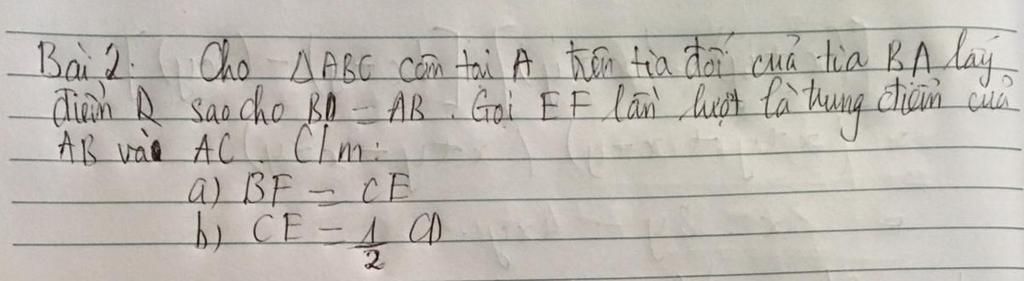 Bài 2. Cho ΔABC cân tại A trên tia đối của tia BA lấy
điểm D sao cho BD = AB. Gọi E F lần lượt là trung điểm của
AB và AC. C/m:
a) BF = CE
b) CE = 1/2 CD